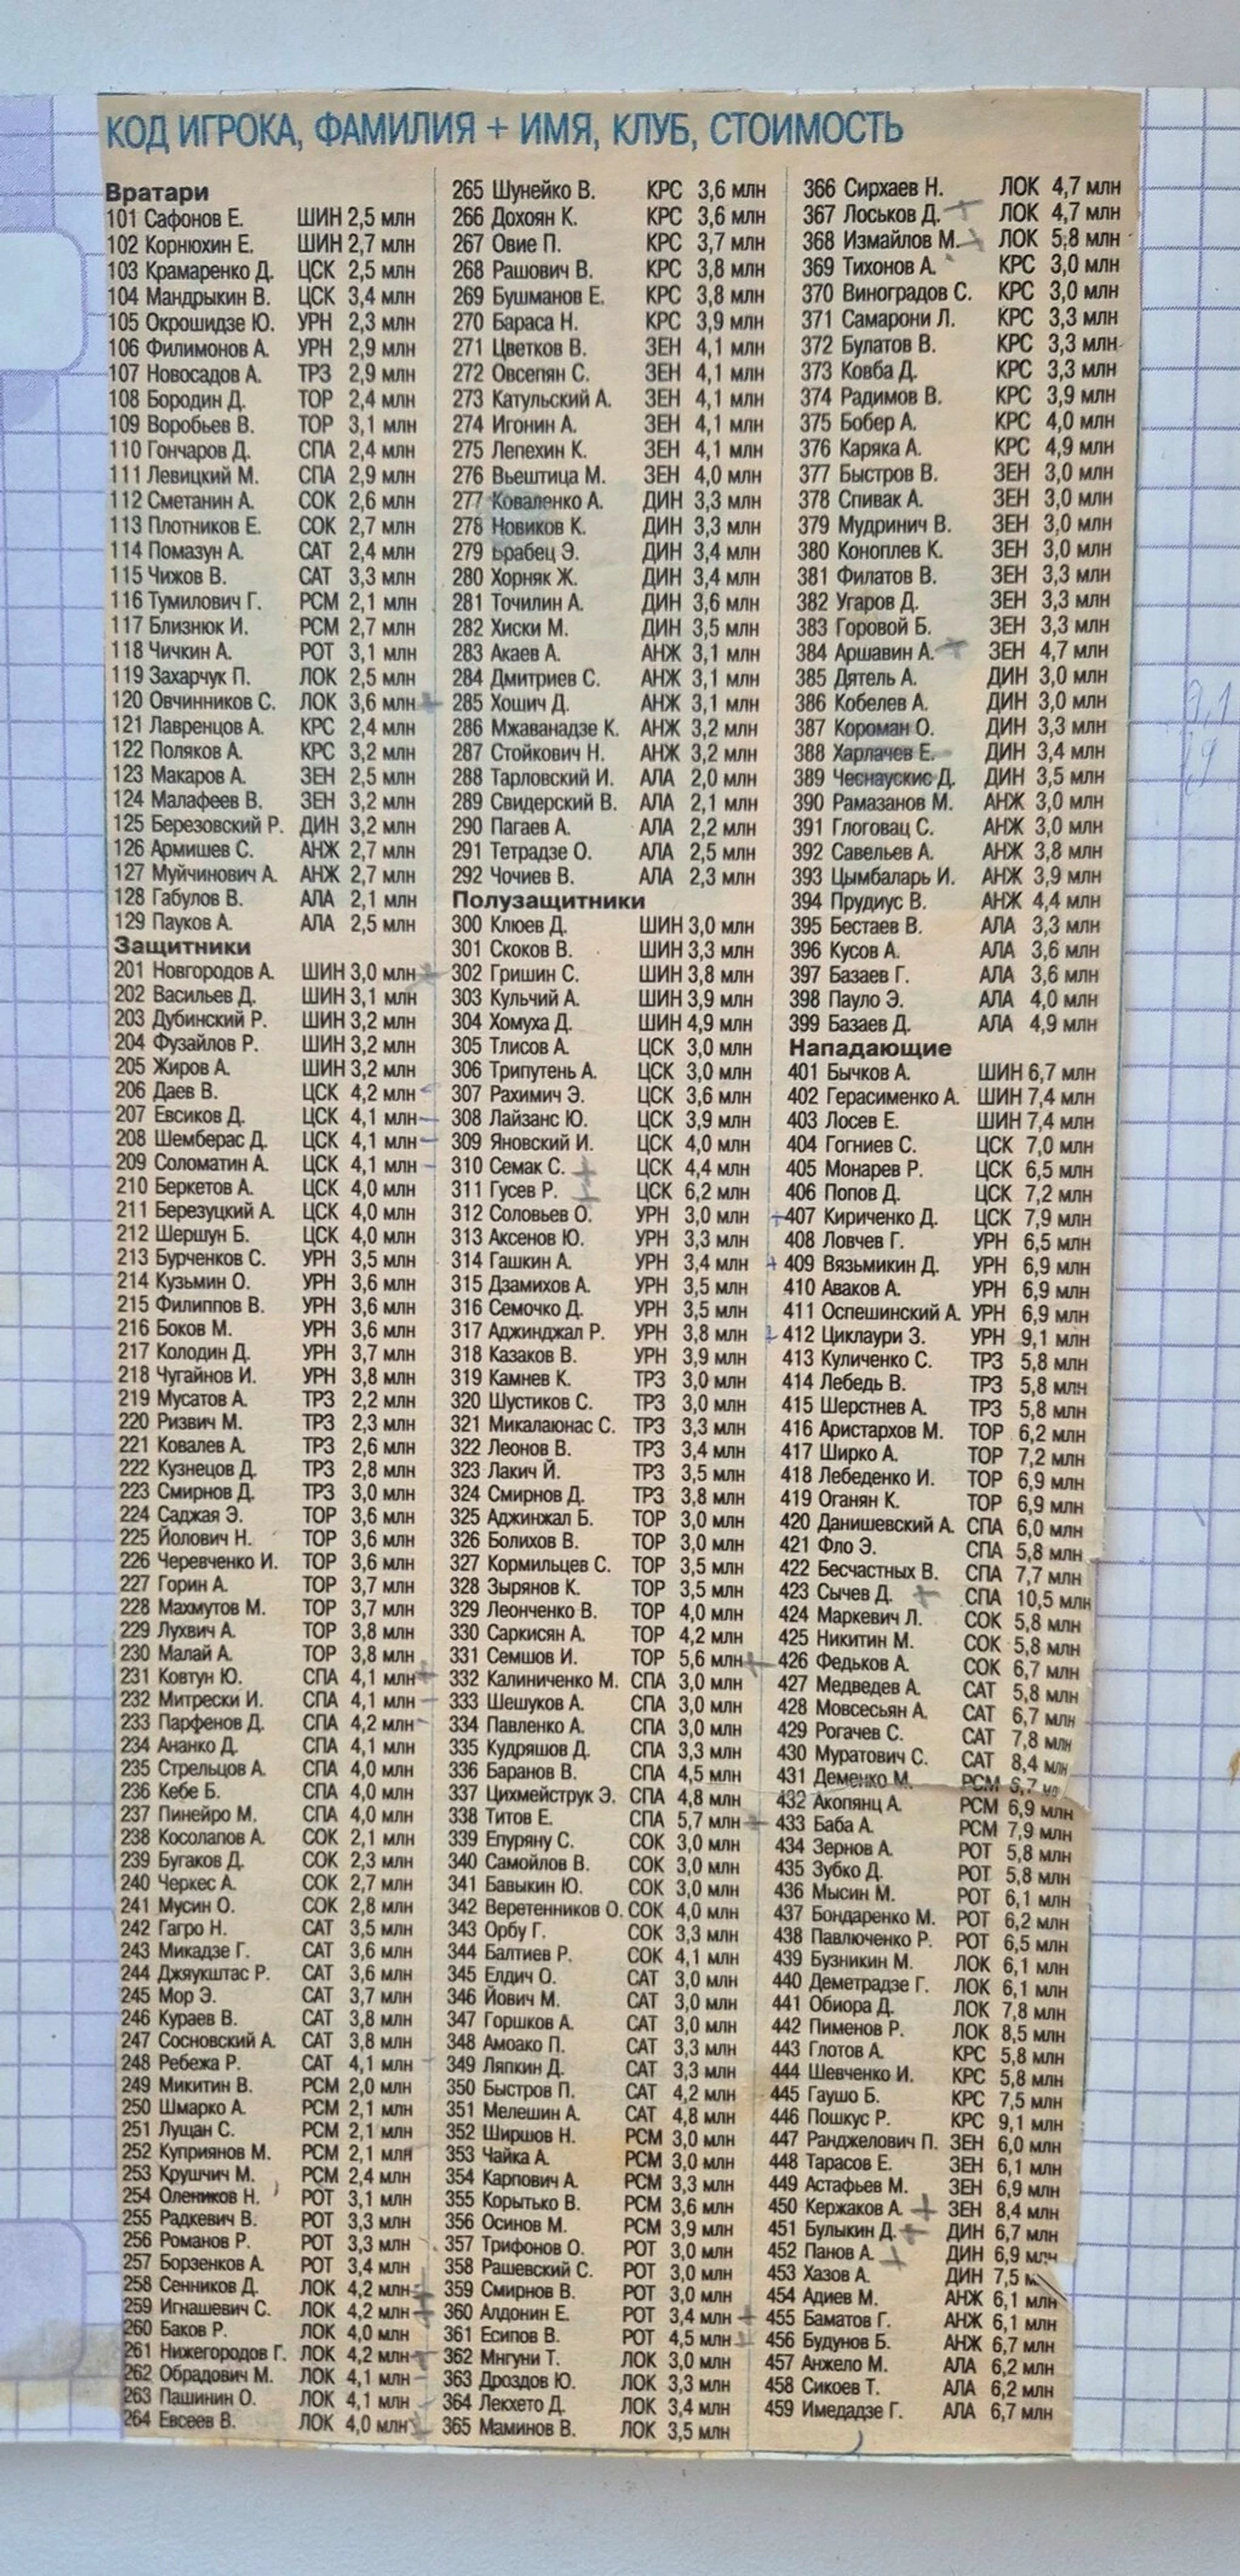 КОД ИГРОКА, ФАМИЛИЯ + ИМЯ, КЛУБ, СТОИМОСТЬ
Вратари
101 Сафонов Е. ШИН 2,5 млн
102 Корнюхин Е. ШИН 2,7 млн
103 Крамаренко Д. ЦСК 2,5 млн
104 Мандрыкин В. ЦСК 3,4 млн
105 Окрошидзе Ю. УРН 2,3 млн
106 Филимонов А. УРН 2,9 млн
107 Новосадов А. ТРЗ 2,9 млн
108 Бородин Д. ТОР 2,4 млн
109 Воробьев В. ТОР 3,1 млн
110 Гончаров Д. СПА 2,4 млн
111 Левицкий М. СПА 2,9 млн
112 Сметанин А. СОК 2,6 млн
113 Плотников Е. СОК 2,7 млн
114 Помазун А. САТ 2,4 млн
115 Чижов В. САТ 3,3 млн
116 Тумилович Г. РСМ 2,1 млн
117 Близнюк И. РСМ 2,7 млн
118 Чичкин А. РОТ 3,1 млн
119 Захарчук П. ЛОК 2,5 млн
120 Овчинников С. ЛОК 3,6 млн
121 Лавренцов А. КРС 2,4 млн
122 Поляков А. КРС 3,2 млн
123 Макаров А. ЗЕН 2,5 млн
124 Малафеев В. ЗЕН 3,2 млн
125 Березовский Р. ДИН 3,2 млн
126 Армишев С. АНЖ 2,7 млн
127 Муйчинович А. АНЖ 2,7 млн
128 Габулов В. АЛА 2,1 млн
129 Пауков А. АЛА 2,5 млн
Защитники
201 Новгородов А. ШИН 3,0 млн
202 Васильев Д. ШИН 3,1 млн
203 Дубинский Р. ШИН 3,2 млн
204 Фузайлов Р. ШИН 3,2 млн
205 Жиров А. ШИН 3,2 млн
206 Даев В. ЦСК 4,2 млн
207 Евсиков Д. ЦСК 4,1 млн
208 Шемберас Д. ЦСК 4,1 млн
209 Соломатин А. ЦСК 4,1 млн
210 Беркетов А. ЦСК 4,0 млн
211 Березуцкий А. ЦСК 4,0 млн
212 Шершун Б. ЦСК 4,0 млн
213 Бурченков С. УРН 3,5 млн
214 Кузьмин О. УРН 3,6 млн
215 Филиппов В. УРН 3,6 млн
216 Боков М. УРН 3,6 млн
217 Колодин Д. УРН 3,7 млн
218 Чугайнов И. УРН 3,8 млн
219 Мусатов А. ТРЗ 2,2 млн
220 Ризвич М. ТРЗ 2,3 млн
221 Ковалев А. ТРЗ 2,6 млн
222 Кузнецов Д. ТРЗ 2,8 млн
223 Смирнов Д. ТРЗ 3,0 млн
224 Саджая Э. ТОР 3,6 млн
225 Йолович Н. ТОР 3,6 млн
226 Черевченко И. ТОР 3,6 млн
227 Горин А. ТОР 3,7 млн
228 Махмутов М. ТОР 3,7 млн
229 Лухвич А. ТОР 3,8 млн
230 Малай А. ТОР 3,8 млн
231 Ковтун Ю. СПА 4,1 млн
232 Митрески И. СПА 4,1 млн
233 Парфенов Д. СПА 4,2 млн
234 Ананко Д. СПА 4,1 млн
235 Стрельцов А. СПА 4,0 млн
236 Кебе Б. СПА 4,0 млн
237 Пинейро М. СПА 4,0 млн
238 Косолапов А. СОК 2,1 млн
239 Бугаков Д. СОК 2,3 млн
240 Черкес А. СОК 2,7 млн
241 Мусин О. СОК 2,8 млн
242 Гагро Н. САТ 3,5 млн
243 Микадзе Г. САТ 3,6 млн
244 Джяукштас Р. САТ 3,6 млн
245 Мор Э. САТ 3,7 млн
246 Кураев В. САТ 3,8 млн
247 Сосновский А. САТ 3,8 млн
248 Ребежа Р. САТ 4,1 млн
249 Микитин В. РСМ 2,0 млн
250 Шмарко А. РСМ 2,1 млн
251 Лущан С. РСМ 2,1 млн
252 Куприянов М. РСМ 2,1 млн
253 Крушчич М. РСМ 2,4 млн
254 Олеников Н. РОТ 3,1 млн
255 Радкевич В. РОТ 3,3 млн
256 Романов Р. РОТ 3,3 млн
257 Борзенков А. РОТ 3,4 млн
258 Сенников Д. ЛОК 4,2 млн
259 Игнашевич С. ЛОК 4,2 млн
260 Баков Р. ЛОК 4,0 млн
261 Нижегородов Г. ЛОК 4,2 млн
262 Обрадович М. ЛОК 4,1 млн
263 Пашинин О. ЛОК 4,1 млн
264 Евсеев В. ЛОК 4,0 млн
265 Шунейко В. КРС 3,6 млн
266 Дохоян К. КРС 3,6 млн
267 Овие П. КРС 3,7 млн
268 Рашович В. КРС 3,8 млн
269 Бушманов Е. КРС 3,8 млн
270 Бараса Н. КРС 3,9 млн
271 Цветков В. ЗЕН 4,1 млн
272 Овсепян С. ЗЕН 4,1 млн
273 Катульский А. ЗЕН 4,1 млн
274 Игонин А. ЗЕН 4,1 млн
275 Лепехин К. ЗЕН 4,1 млн
276 Вьештица М. ЗЕН 4,0 млн
277 Коваленко А. ДИН 3,3 млн
278 Новиков К. ДИН 3,3 млн
279 Брабец Э. ДИН 3,4 млн
280 Хорняк Ж. ДИН 3,4 млн
281 Точилин А. ДИН 3,6 млн
282 Хиски М. ДИН 3,5 млн
283 Акаев А. АНЖ 3,1 млн
284 Дмитриев С. АНЖ 3,1 млн
285 Хошич Д. АНЖ 3,1 млн
286 Мжаванадзе К. АНЖ 3,2 млн
287 Стойкович Н. АНЖ 3,2 млн
288 Тарловский И. АЛА 2,0 млн
289 Свидерский В. АЛА 2,1 млн
290 Пагаев А. АЛА 2,2 млн
291 Тетрадзе О. АЛА 2,5 млн
292 Чочиев В. АЛА 2,3 млн
Полузащитники
300 Клюев Д. ШИН 3,0 млн
301 Скоков В. ШИН 3,3 млн
302 Гришин С. ШИН 3,8 млн
303 Кульчий А. ШИН 3,9 млн
304 Хомуха Д. ШИН 4,9 млн
305 Тлисов А. ЦСК 3,0 млн
306 Трипутень А. ЦСК 3,0 млн
307 Рахимич Э. ЦСК 3,6 млн
308 Лайзанс Ю. ЦСК 3,9 млн
309 Яновский И. ЦСК 4,0 млн
310 Семак С. ЦСК 4,4 млн
311 Гусев Р. ЦСК 6,2 млн
312 Соловьев О. УРН 3,0 млн
313 Аксенов Ю. УРН 3,3 млн
314 Гашкин А. УРН 3,4 млн
315 Дзамихов А. УРН 3,5 млн
316 Семочко Д. УРН 3,5 млн
317 Аджинджал Р. УРН 3,8 млн
318 Казаков В. УРН 3,9 млн
319 Камнев К. ТРЗ 3,0 млн
320 Шустиков С. ТРЗ 3,0 млн
321 Микалаюнас С. ТРЗ 3,3 млн
322 Леонов В. ТРЗ 3,4 млн
323 Лакич Й. ТРЗ 3,5 млн
324 Смирнов Д. ТРЗ 3,8 млн
325 Аджинжал Б. ТОР 3,0 млн
326 Болихов В. ТОР 3,0 млн
327 Кормильцев С. ТОР 3,5 млн
328 Зырянов К. ТОР 3,5 млн
329 Леонченко В. ТОР 4,0 млн
330 Саркисян А. ТОР 4,2 млн
331 Семшов И. ТОР 5,6 млн
332 Калиниченко М. СПА 3,0 млн
333 Шешуков А. СПА 3,0 млн
334 Павленко А. СПА 3,0 млн
335 Кудряшов Д. СПА 3,3 млн
336 Баранов В. СПА 4,5 млн
337 Цихмейструк Э. СПА 4,8 млн
338 Титов Е. СПА 5,7 млн
339 Епуряну С. СОК 3,0 млн
340 Самойлов В. СОК 3,0 млн
341 Бавыкин Ю. СОК 3,0 млн
342 Веретенников О. СОК 4,0 млн
343 Орбу Г. СОК 3,3 млн
344 Балтиев Р. СОК 4,1 млн
345 Елдич О. САТ 3,0 млн
346 Йович М. САТ 3,0 млн
347 Горшков А. САТ 3,0 млн
348 Амоако П. САТ 3,3 млн
349 Ляпкин Д. САТ 3,3 млн
350 Быстров П. САТ 4,2 млн
351 Мелешин А. САТ 4,8 млн
352 Ширшов Н. РСМ 3,0 млн
353 Чайка А. РСМ 3,0 млн
354 Карпович А. РСМ 3,3 млн
355 Корытько В. РСМ 3,6 млн
356 Осинов М. РСМ 3,9 млн
357 Трифонов О. РОТ 3,0 млн
358 Рашевский С. РОТ 3,0 млн
359 Смирнов В. РОТ 3,0 млн
360 Алдонин Е. РОТ 3,4 млн
361 Есипов В. РОТ 4,5 млн
362 Мнгуни Т. ЛОК 3,0 млн
363 Дроздов Ю. ЛОК 3,3 млн
364 Лекхето Д. ЛОК 3,4 млн
365 Маминов В. ЛОК 3,5 млн
366 Сирхаев Н. ЛОК 4,7 млн
367 Лоськов Д. ЛОК 4,7 млн
368 Измайлов М. ЛОК 5,8 млн
369 Тихонов А. КРС 3,0 млн
370 Виноградов С. КРС 3,0 млн
371 Самарони Л. КРС 3,3 млн
372 Булатов В. КРС 3,3 млн
373 Ковба Д. КРС 3,3 млн
374 Радимов В. КРС 3,9 млн
375 Бобер А. КРС 4,0 млн
376 Каряка А. КРС 4,9 млн
377 Быстров В. ЗЕН 3,0 млн
378 Спивак А. ЗЕН 3,0 млн
379 Мудринич В. ЗЕН 3,0 млн
380 Коноплев К. ЗЕН 3,0 млн
381 Филатов В. ЗЕН 3,3 млн
382 Угаров Д. ЗЕН 3,3 млн
383 Горовой Б. ЗЕН 3,3 млн
384 Аршавин А. ЗЕН 4,7 млн
385 Дятель А. ДИН 3,0 млн
386 Кобелев А. ДИН 3,0 млн
387 Короман О. ДИН 3,3 млн
388 Харлачев Е. ДИН 3,4 млн
389 Чеснаускис Д. ДИН 3,5 млн
390 Рамазанов М. АНЖ 3,0 млн
391 Глоговац С. АНЖ 3,0 млн
392 Савельев А. АНЖ 3,8 млн
393 Цымбаларь И. АНЖ 3,9 млн
394 Прудиус В. АНЖ 4,4 млн
395 Бестаев В. АЛА 3,3 млн
396 Кусов А. АЛА 3,6 млн
397 Базаев Г. АЛА 3,6 млн
398 Пауло Э. АЛА 4,0 млн
399 Базаев Д. АЛА 4,9 млн
Нападающие
401 Бычков А. ШИН 6,7 млн
402 Герасименко А. ШИН 7,4 млн
403 Лосев Е. ШИН 7,4 млн
404 Гогниев С. ЦСК 7,0 млн
405 Монарев Р. ЦСК 6,5 млн
406 Попов Д. ЦСК 7,2 млн
407 Кириченко Д. ЦСК 7,9 млн
408 Ловчев Г. УРН 6,5 млн
409 Вязьмикин Д. УРН 6,9 млн
410 Аваков А. УРН 6,9 млн
411 Оспешинский А. УРН 6,9 млн
412 Циклаури З. УРН 9,1 млн
413 Куличенко С. ТРЗ 5,8 млн
414 Лебедь В. ТРЗ 5,8 млн
415 Шерстнев А. ТРЗ 5,8 млн
416 Аристархов М. ТОР 6,2 млн
417 Ширко А. ТОР 7,2 млн
418 Лебеденко И. ТОР 6,9 млн
419 Оганян К. ТОР 6,9 млн
420 Данишевский А. СПА 6,0 млн
421 Фло Э. СПА 5,8 млн
422 Бесчастных В. СПА 7,7 млн
423 Сычев Д. СПА 10,5 млн
424 Маркевич Л. СОК 5,8 млн
425 Никитин М. СОК 5,8 млн
426 Федьков А. СОК 6,7 млн
427 Медведев А. САТ 5,8 млн
428 Мовсесьян А. САТ 6,7 млн
429 Рогачев С. САТ 7,8 млн
430 Муратович С. САТ 8,4 млн
431 Деменко М. РСМ 6,7
432 Акопянц А. РСМ 6,9 млн
433 Баба А. РСМ 7,9 млн
434 Зернов А. РОТ 5,8 млн
435 Зубко Д. РОТ 5,8 млн
436 Мысин М. РОТ 6,1 млн
437 Бондаренко М. РОТ 6,2 млн
438 Павлюченко Р. РОТ 6,5 млн
439 Бузникин М. ЛОК 6,1 млн
440 Деметрадзе Г. ЛОК 6,1 млн
441 Обиора Д. ЛОК 7,8 млн
442 Пименов Р. ЛОК 8,5 млн
443 Глотов А. КРС 5,8 млн
444 Шевченко И. КРС 5,8 млн
445 Гаушо Б. КРС 7,5 млн
446 Пошкус Р. КРС 9,1 млн
447 Ранджелович П. ЗЕН 6,0 млн
448 Тарасов Е. ЗЕН 6,1 млн
449 Астафьев М. ЗЕН 6,9 млн
450 Кержаков А. ЗЕН 8,4 млн
451 Булыкин Д. ДИН 6,7 млн
452 Панов А. ДИН 6,9 млн
453 Хазов А. ДИН 7,5
454 Адиев М. АНЖ 6,1 млн
455 Баматов Г. АНЖ 6,1 млн
456 Будунов Б. АНЖ 6,7 млн
457 Анжело М. АЛА 6,2 млн
458 Сикоев Т. АЛА 6,2 млн
459 Имедадзе Г. АЛА 6,7 млн